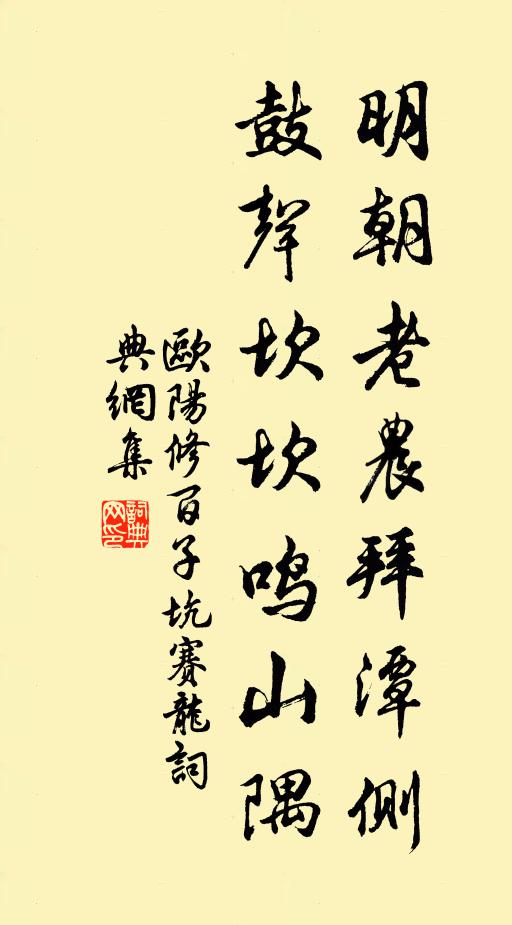 明朝老農拜潭側
鼓聲坎坎鸣山隅
歐陽修百子坑賽龍詞
典網集
詞典网印